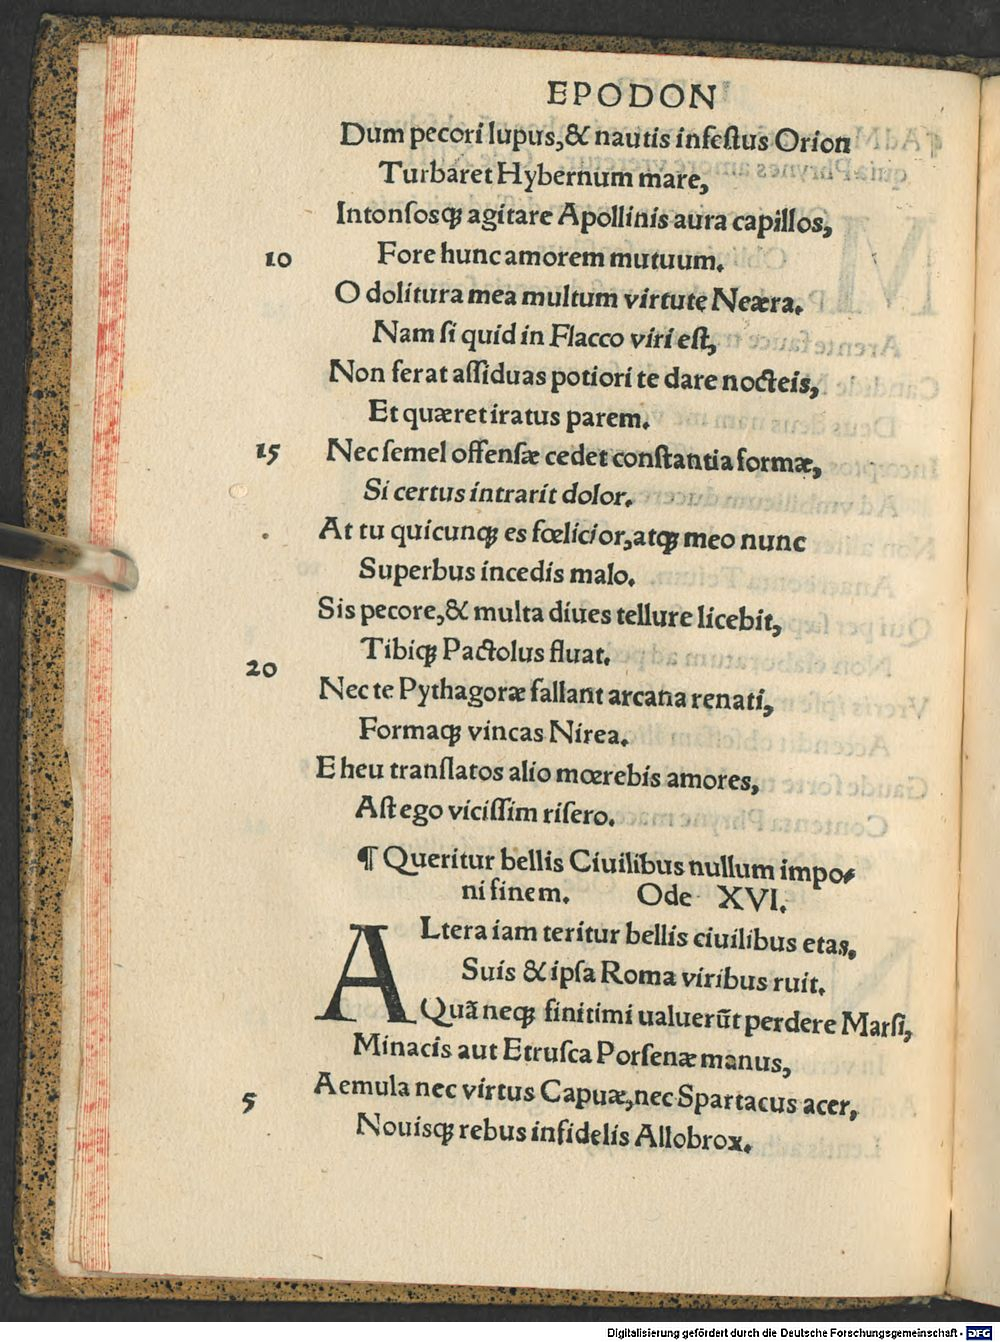 EPODON
Dum pecori lupus,& nautis infeſtus Orion
Turbaret Hybernum mare,
Intonſosq; agitare Apollinis aura capillos,
10 Fore hunc amorem mutuum.
O dolitura mea multum virtute Neæra.
Nam ſi quid in Flacco viri eſt,
Non ferat aſſiduas potiori te dare nocteis,
Et quæret iratus parem.
15 Nec ſemel offenſæ cedet conſtantia formæ,
Si certus intrarit dolor.
At tu quicunq; es fœlicior,atq; meo nunc
Superbus incedis malo.
Sis pecore,& multa diues tellure licebit,
20 Tibiq; Pactolus fluat.
Nec te Pythagoræ fallant arcana renati,
Formaq; vincas Nirea.
Eheu tranſlatos alio mœrebis amores,
Aſt ego viciſſim riſero.
¶ Queritur bellis Ciuilibus nullum impo-
ni finem. Ode XVI.
ALtera iam teritur bellis ciuilibus etas,
Suis & ipſa Roma viribus ruit.
Quã neq; finitimi ualuerũt perdere Marſi,
Minacis aut Etruſca Porſenæ manus,
5 Aemula nec virtus Capuæ,nec Spartacus acer,
Nouisq; rebus infidelis Allobrox.
Digitalisierung gefördert durch die Deutsche Forschungsgemeinschaft - DFG